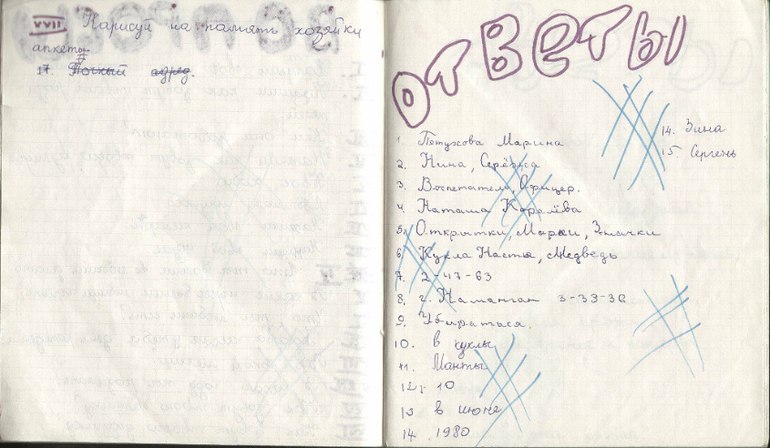 XVII Нарисуй на память хозяйки
анкеты.
17.
ОТВЕТЫ
1. Петухова Марина
2. Нина, Серёжа
3. Воспетатель, Офицер.
4. Наташа Королёва
5. Открытки, Марки, Значки
6. Кукла Настя, Медведь
7. 2-47-63
8. г. Наманган 3-33-36
9. Убираться.
10. в куклы
11. Манты
12. 10
13 в июне
14. 1980
14. Зина
15. Сергень